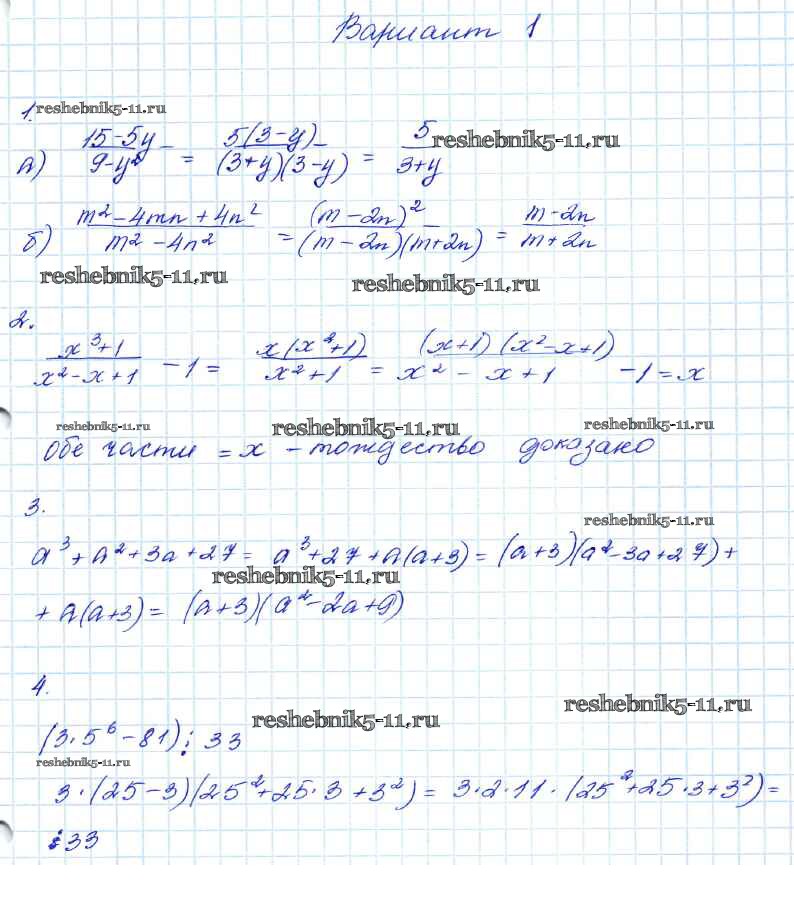 Вариант 1
1. reshebnik5-11.ru
а) 15-5y / 9-y² = 5(3-y) / (3+y)(3-y) = 5 / 3+y reshebnik5-11.ru
б) m²-4mn+4n² / m²-4n² = (m-2n)² / (m-2n)(m+2n) = m-2n / m+2n
reshebnik5-11.ru reshebnik5-11.ru
2.
x³+1 / x²-x+1 -1 = x(x²+1) / x²+1 = (x+1)(x²-x+1) / x²-x+1 -1 = x
reshebnik5-11.ru reshebnik5-11.ru reshebnik5-11.ru
Обе части = x - тождество доказано
3.
reshebnik5-11.ru
a³+a²+3a+27 = a³+27+a(a+3) = (a+3)(a²-3a+27)+
reshebnik5-11.ru
+a(a+3) = (a+3)(a²-2a+9)
4.
reshebnik5-11.ru reshebnik5-11.ru
(3·5⁶-81)⋮33
reshebnik5-11.ru
3·(25-3)(25²+25·3+3²) = 3·2·11·(25²+25·3+3²) =
⋮33